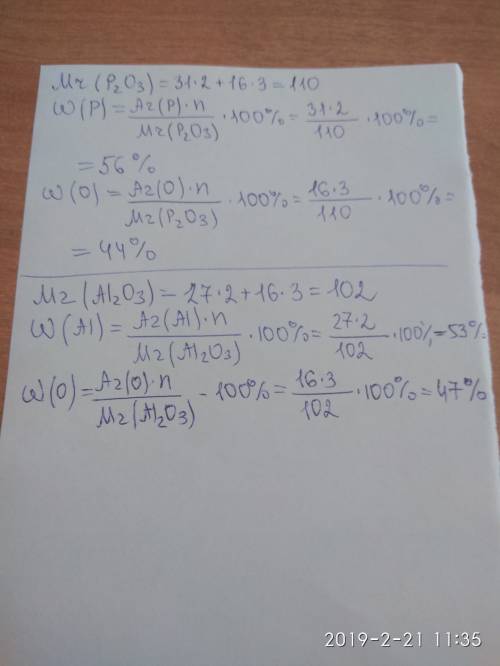 Mr (P₂O₃) = 31·2 + 16·3 = 110
W(P) = Ar(P)·n / Mr(P₂O₃) · 100% = 31·2 / 110 · 100% =
= 56%
W(O) = Ar(O)·n / Mr(P₂O₃) · 100% = 16·3 / 110 · 100% =
= 44%
Mr (Al₂O₃) = 27·2 + 16·3 = 102
W(Al) = Ar(Al)·n / Mr(Al₂O₃) · 100% = 27·2 / 102 · 100% = 53%
W(O) = Ar(O)·n / Mr(Al₂O₃) - 100% = 16·3 / 102 · 100% = 47%
2019-2-21 11:35